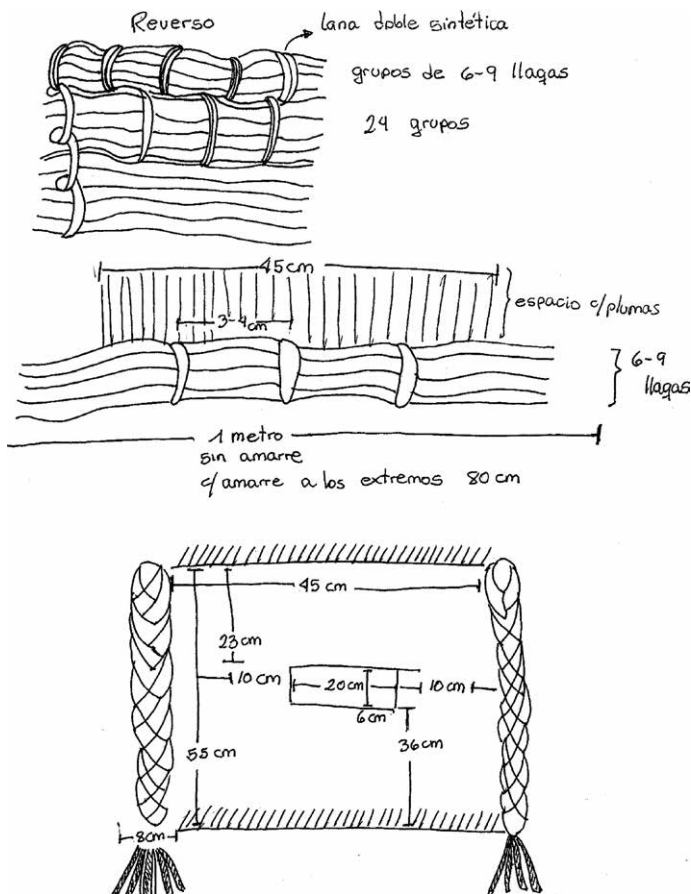 Reverso
lana doble sintética
grupos de 6-9 llagas
24 grupos
45cm
espacio c/plumas
3-4cm
6-9
llagas
1 metro
sin amarre
c/ amarre a los extremos 80 cm
45 cm
23cm
10 cm
20cm
10cm
6cm
36cm
55 cm
8cm